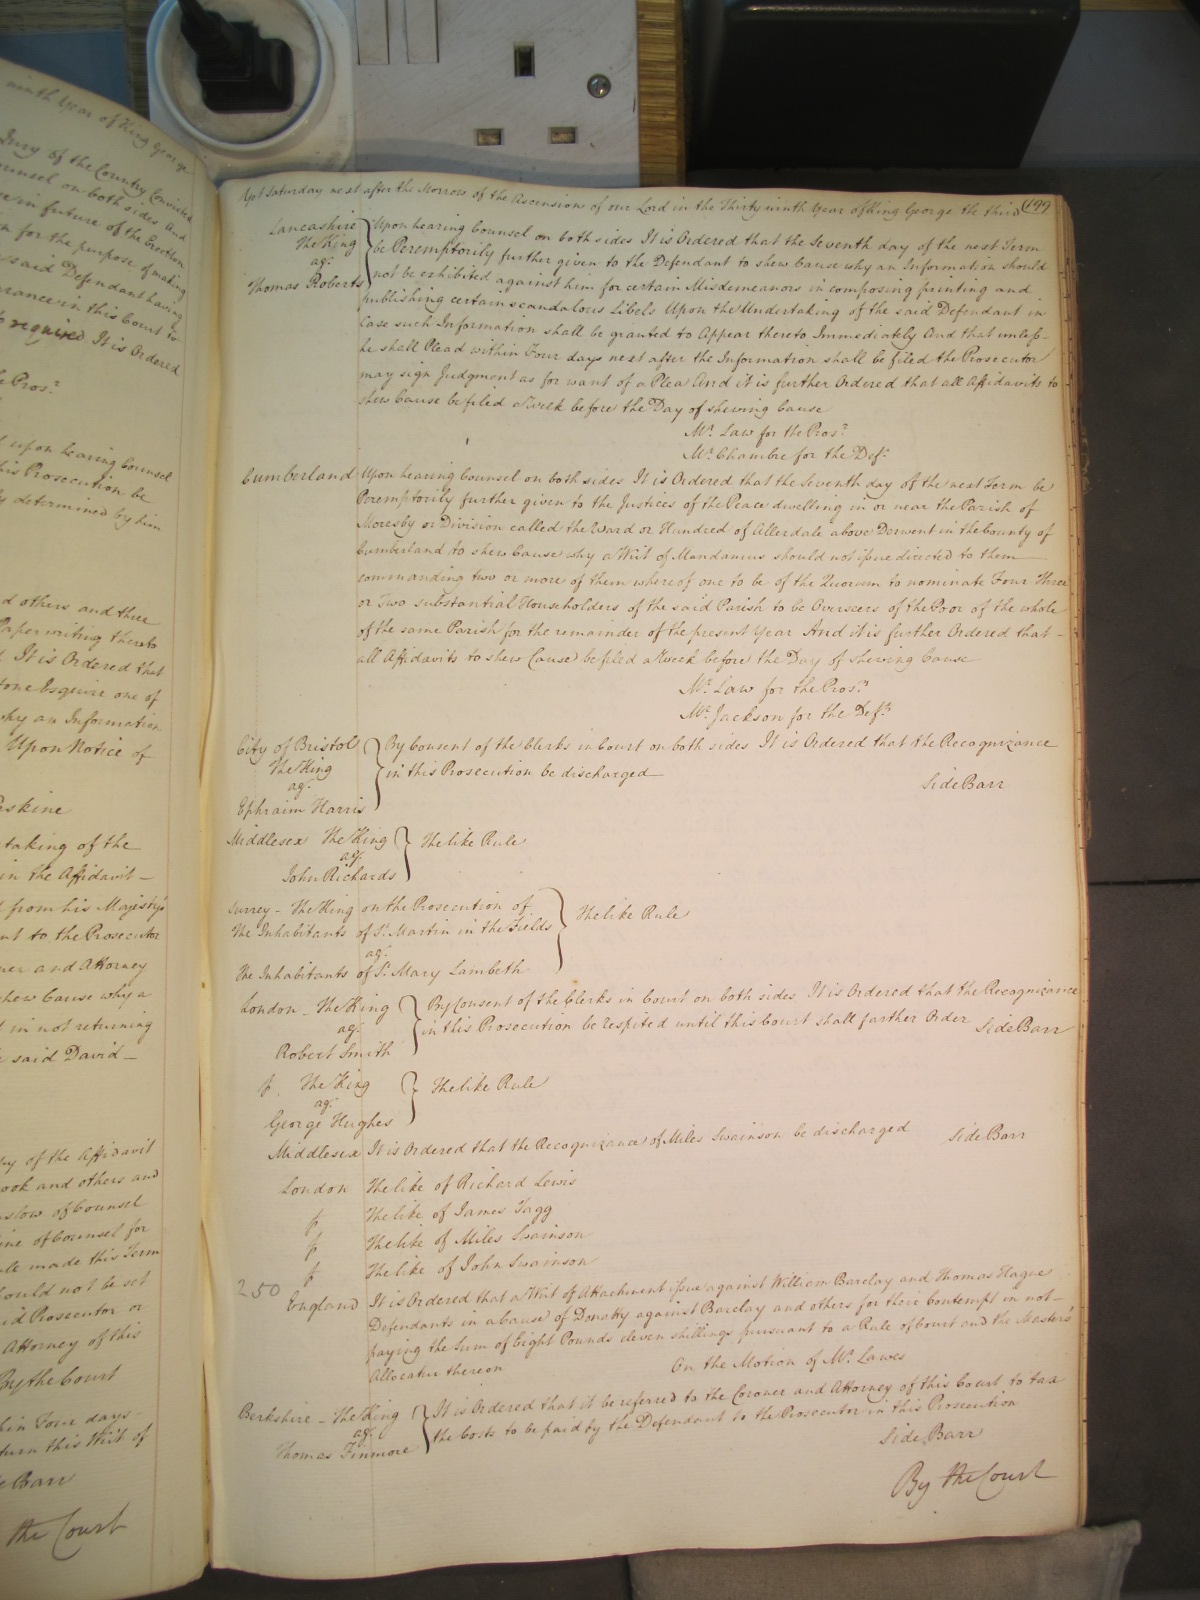 ninth Year of King George
Jury of the Country Convicted
Counsel on both sides And
in future of the Erection
for the purpose of making
said Defendant having
in this Court to
required It is Ordered
Pros.r
upon hearing Counsel
this Prosecution be
determined by him
d others and three
Paper writing thereto
It is Ordered that
Esquire one of
why an Information
Upon Notice of
Erskine
taking of the
in the Affidavit
from his Majesty's
to the Prosecutor
ner and Attorney
shew Cause why a
in not returning
said David
of the Affidavit
ook and others and
of Counsel
of Counsel for
made this Term
should not be set
Prosecutor or
Attorney of this
By the Court
within Four days
return this Writ of
Side Barr
the Court
Saturday next after the Morrow of the Ascension of our Lord in the Thirty ninth Year of King George the third 199
Lancashire
The King
ag.t
Thomas Roberts
Upon hearing Counsel on both sides It is Ordered that the Seventh day of the next Term
be Peremptorily further given to the Defendant to shew Cause why an Information should
not be exhibited against him for certain Misdemeanors in composing printing and
publishing certain scandalous Libels Upon the Undertaking of the said Defendant in
Case such Information shall be granted to Appear thereto Immediately And that unless
he shall Plead within Four days next after the Information shall be filed the Prosecutor
may sign Judgment as for want of a Plea And it is further Ordered that all Affidavits to
shew Cause be filed a Week before the Day of shewing Cause
Mr. Law for the Pros.r
Mr. Chambre for the Def.t
Cumberland Upon hearing Counsel on both sides It is Ordered that the Seventh day of the next Term be
Peremptorily further given to the Justices of the Peace dwelling in or near the Parish of
Moresby or Division called the Ward or Hundred of Allerdale above Derwent in the County of
Cumberland to shew Cause why a Writ of Mandamus should not issue directed to them
commanding two or more of them whereof one to be of the Quorum to nominate Four Three
or Two substantial Householders of the said Parish to be Overseers of the Poor of the whole
of the same Parish for the remainder of the present Year And it is further Ordered that
all Affidavits to shew Cause be filed a Week before the Day of shewing Cause
Mr. Law for the Pros.r
Mr. Jackson for the Def.ts
City of Bristol
The King
ag.t
Ephraim Harris
By Consent of the Clerks in Court on both sides It is Ordered that the Recognizance
in this Prosecution be discharged
Side Barr
Middlesex The King
ag.t
John Richards
The like Rule
Surrey - The King on the Prosecution of
the Inhabitants of St. Martin in the Fields
ag.t
the Inhabitants of St. Mary Lambeth
The like Rule
London - The King
ag.t
Robert Smith
By Consent of the Clerks in Court on both sides It is Ordered that the Recognizance
in this Prosecution be respited until this Court shall further Order Side Barr
p. The King
ag.t
George Hughes
The like Rule
Middlesex It is Ordered that the Recognizance of Miles Swainson be discharged Side Barr
London The like of Richard Lewis
p. The like of James Tagg
p. The like of Miles Swainson
p. The like of John Swainson
250
England It is Ordered that a Writ of Attachment issue against William Barclay and Thomas Hague
Defendants in a Cause of Donatty against Barclay and others for their Contempt in not
paying the Sum of Eight Pounds eleven shillings pursuant to a Rule of Court and the Master's
Allocatur thereon On the Motion of Mr. Lawes
Berkshire - The King
ag.t
Thomas Finmore
It is Ordered that it be referred to the Coroner and Attorney of this Court to tax
the Costs to be paid by the Defendant to the Prosecutor in this Prosecution
Side Barr
By the Court